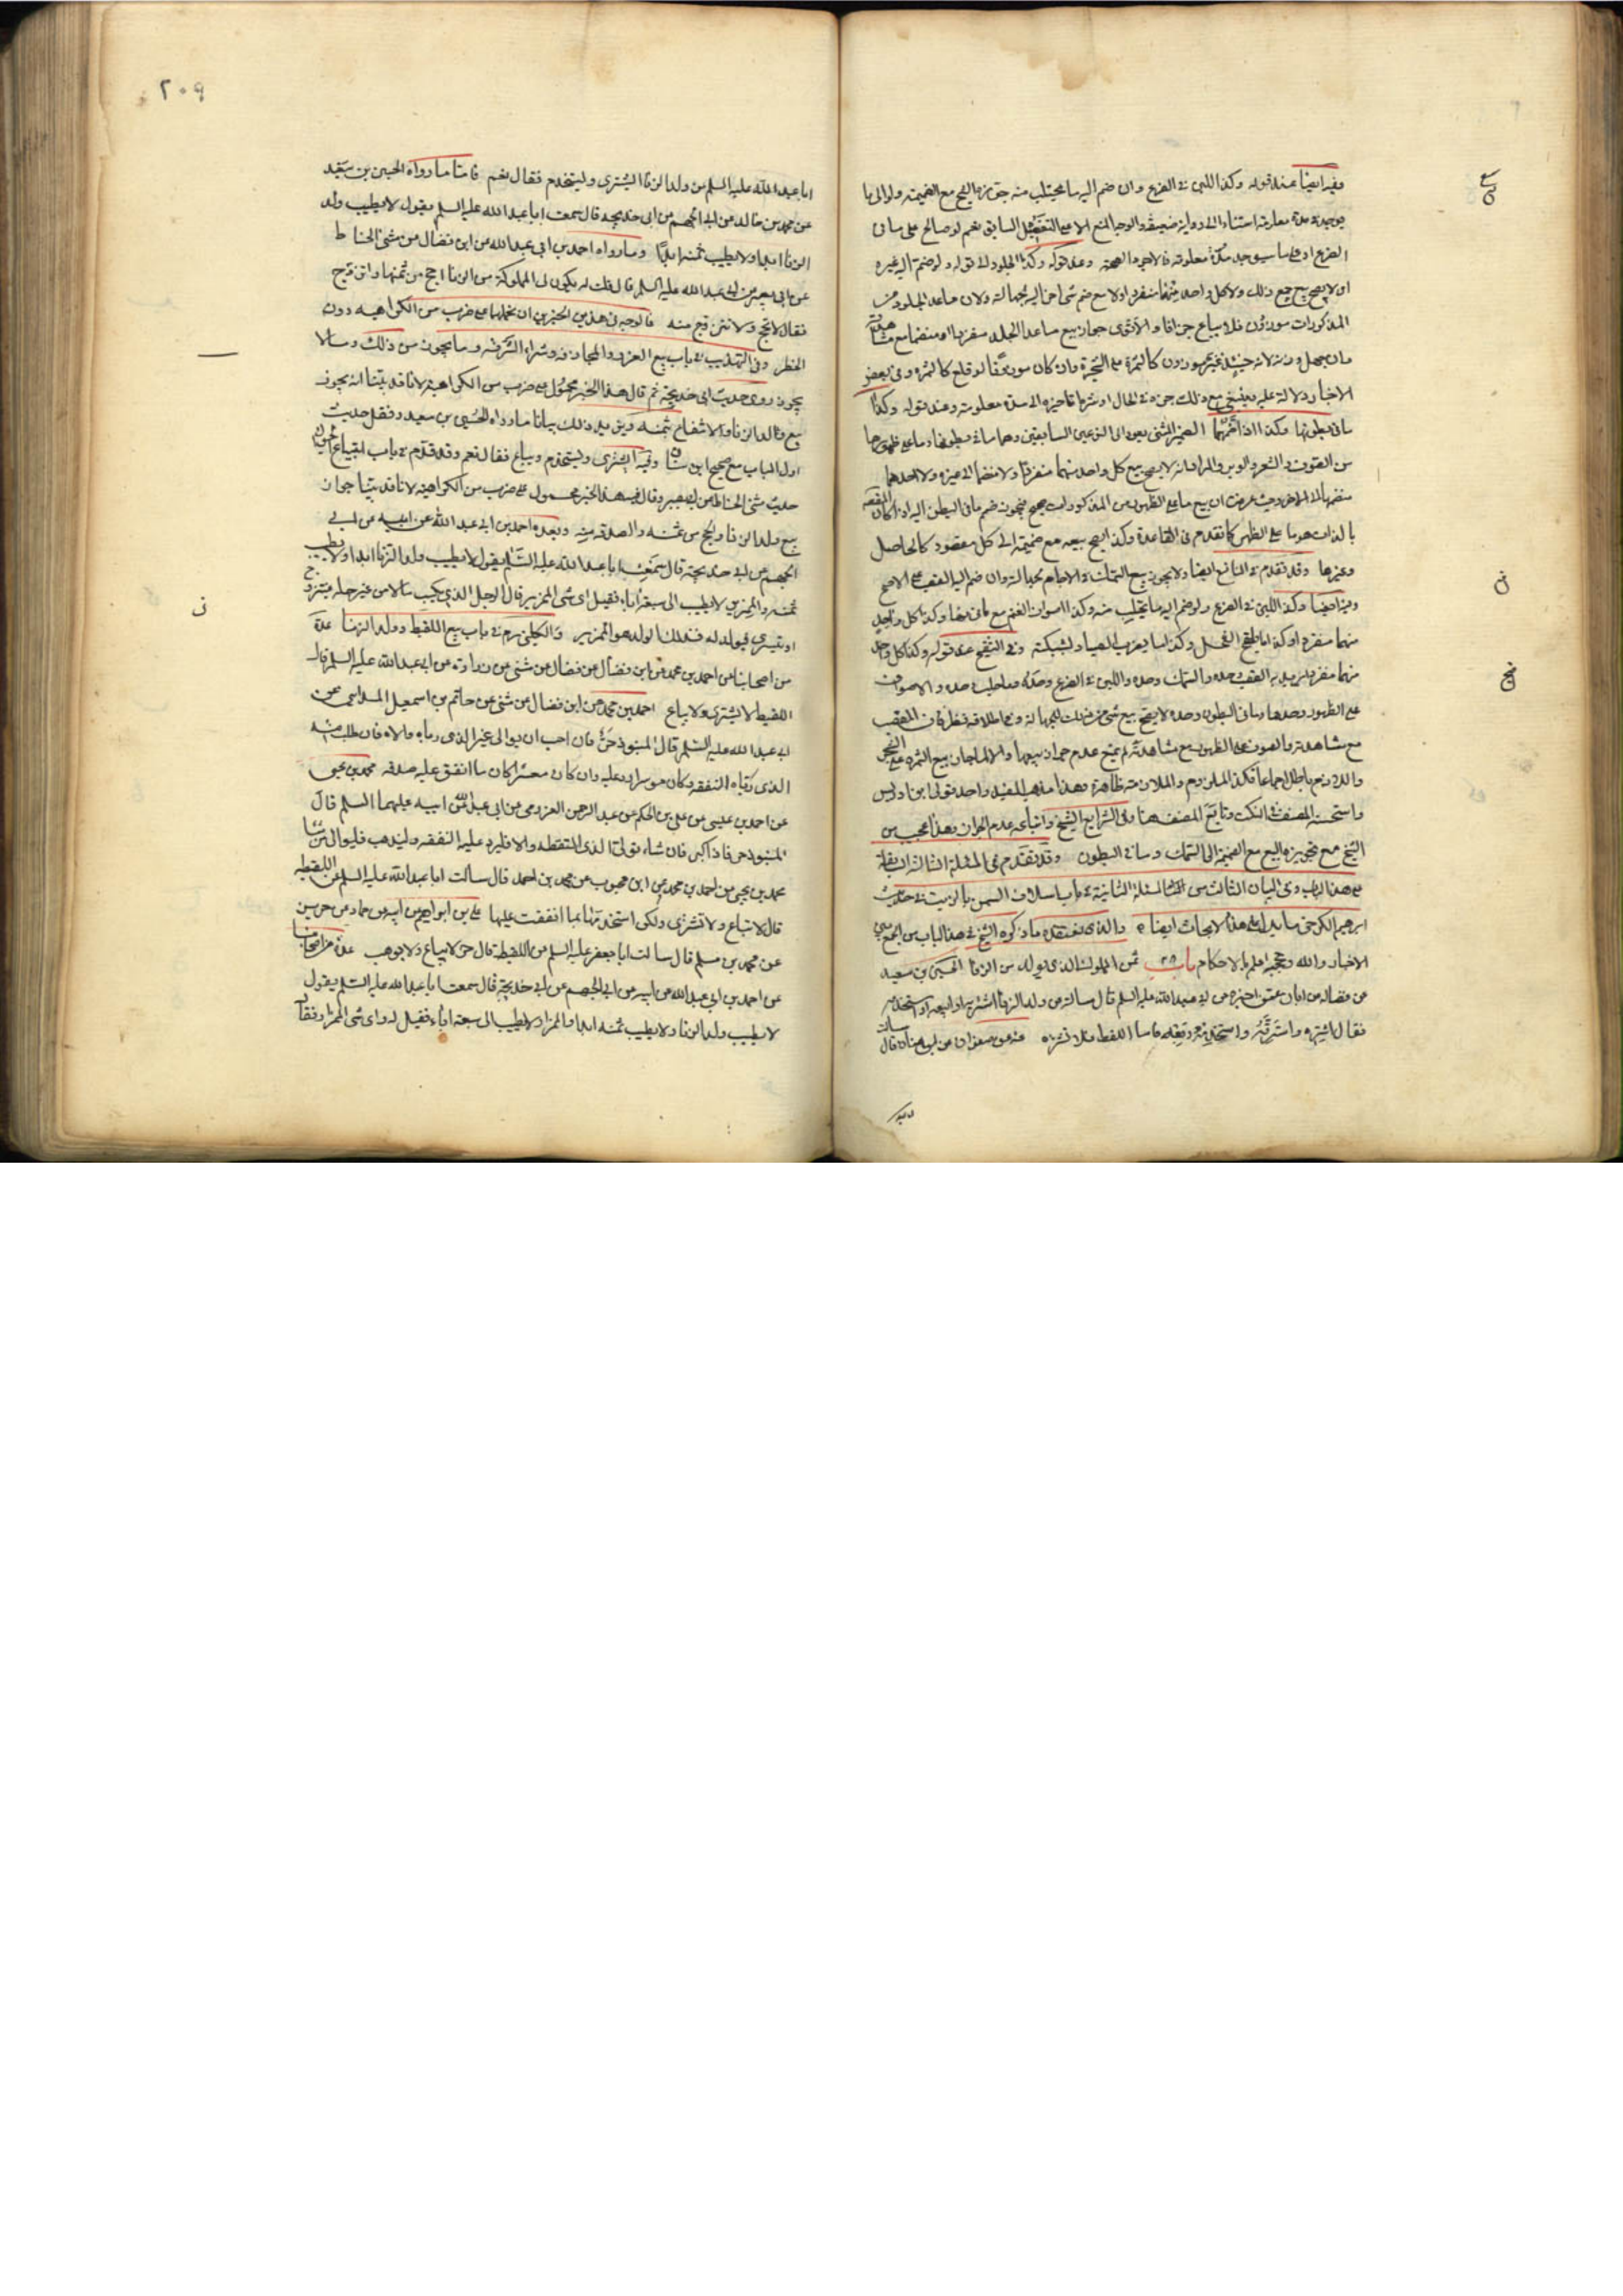 وفيه ايضا عند قوله وكذا اللبن في الضرع وان ضم اليه ما يحتلب منه جوزنا البيع مع الضميمة ولو الى ما
يوجد في مدة معلومة استنادا الى رواية ضعيفة والوجه المنع الا على التفصيل السابق نعم لو صالح على ما في
الضرع او على ما سيوجد مدة معلومة فالاجود الصحة وعند قوله وكذا الجلود الى قوله ولو ضم اليه غيره
اي لا يصح بيع جميع ذلك ولا كل واحد منها منفردا ولا مع ضم شئ اخر اليه لجهالته ولان ما عدا الجلود من
المذكورات موزون فلا يباع جزافا والاقوى جواز بيع ما عدا الجلد منفردا او منضما مع مشاهدته
وان جهل وزنه لانه حينئذ غير موزون كالثمرة على الشجرة وان كان موزونا لو قلع كالثمرة وفي بعض
الاخبار دلالة عليه وينبغي مع ذلك جزه في الحال او شرط تاخيره الى مدة معلومة وعند قوله وكذا
ما في بطونها وكذا اذا ضمهما الضمير المثنى يعود الى النوعين السابقين وهما ما في بطونها وما على ظهورها
من الصوف والشعر والوبر والمراد انه لا يصح بيع كل واحد منهما منفردا ولا منضما الى غيره ولا احدهما
منضما الى الاخر وحيث عرفت ان بيع ما على الظهر من المذكورات صحيح فيجوز ضم ما في البطن اليه اذا كان المقصود
بالذات هو ما على الظهر كما تقدم في القاعدة وكذا يصح بيعه مع ضميمة الى كل مقصود كالحاصل
وغيرها وقد تقدم في النافع ايضا ولا يجوز بيع السمك في الاجام لجهالته وان ضم اليه القصب على الاصح
وفيه ايضا وكذا اللبن في الضرع ولو ضم اليه ما يحتلب منه وكذا اصواف الغنم مع ما في بطنها وكذا كل واحد
منهما منفردا وكذا ما يلقح الفحل وكذا ما يضرب الصياد بشبكته وفي التنقيح عند قوله وكذا كل واحد
منهما منفردا يريد به القصب وحده والسمك وحده واللبن في الضرع وحده وما احتلب وحده والاصواف
على الظهور وحدها وما في البطون وحده لا يصح بيع شئ من ذلك للجهالة وفي اطلاقه نظر فان القصب
مع مشاهدته والصوف على الظهر مع مشاهدته لم يمنع عدم جواز بيعهما والا لما جاز بيع الثمرة على الشجر
واللازم باطل اجماعا فكذا الملزوم والملازمة ظاهرة وهذا مذهب المفيد واحد قولي ابن ادريس
واستحسنه المصنف في النكت وتابع المصنف هنا وفي الشرايع الشيخ واتباعه عدم الجواز وهذا عجيب من
الشيخ مع تجويزه البيع مع الضميمة الى السمك وما في البطون وقد تقدم في المسئلة الثالثة السابقة
على هذا الباب وفي البيان الثالث من المسئلة الثانية في باب اسلاف السمن بالزيت في حديث
ابرهيم الكرخي ما يدل على هذا الابحاث ايضا والذي نعتقده ما ذكره الشيخ في هذا الباب من الجمع بين
الاخبار والله وحججه اعلم بالاحكام باب ٣٥ ثمن المملوك الذي يولد من الزنا الحسين بن سعيد
عن فضالة عن ابان عمن اخبره عن ابي عبد الله عليه السلم قال سالته عن ولد الزنا اشتريه او ابيعه او استخدمه
فقال اشتره واسترقه واستخدمه وبعه فاما اللقيط فلا تشتره عنه عن صفوان عن ابن سنان قال سالت
اباعبد الله عليه السلم عن ولد الزنا ايشترى وليتخدم فقال نعم فاما ما رواه الحسين بن سعيد
عن محمد بن خالد عن ابي الجهم عن ابي خديجة قال سمعت ابا عبد الله عليه السلم يقول لا يطيب ولد
الزنا ابدا ولا يطيب ثمنه ابدا وما رواه احمد بن ابي عبد الله عن ابن فضال عن مثنى الحناط
عن ابي بصير عن ابي عبد الله عليه السلم قال قلت له يكون لى المملوكة من الزنا احج من ثمنها واتزوج
فقال لا تحج ولا تتزوج منه فالوجه في هذين الخبرين ان نحملهما على ضرب من الكراهيه دون
الحظر وفي التهذيب في باب بيع الغرر والمجازفه وشراء السرقه وما يجوز من ذلك وما لا
يجوز روى حديث ابي خديجة ثم قال هذا الخبر محمول على ضرب من الكراهية لانا قد بينا انه يجوز
بيع ولد الزنا والانتفاع بثمنه ويزيد ذلك بيانا ما رواه الحسين بن سعيد ونقل حديث
اول الباب مع صحيح ابن سنان وفيه ايشترى وليستخدم ويباع فقال نعم وقد قدم في باب ابتياع الحيوان
حديث مثنى الحناط عن ابي بصير وقال فيه هذا الخبر محمول على ضرب من الكراهية لانا قد بينا جواز
بيع ولد الزنا والحج من ثمنه والصدقة منه وبعده احمد بن ابي عبد الله عن ابيه عن ابي
الجهم عن ابي خديجة قال سمعت ابا عبد الله عليه السلم يقول لا يطيب ولد الزنا ابدا ولا يطيب
ثمنه والممزير لا يطيب الى سبعة اباء فقيل اى شئ الممزير قال الرجل الذي يكسب مالا من غير حله فيتزوج
او يتسرى فيولد له فذلك الولد هو الممزير والكليني ره في باب بيع اللقيط وولد الزنا عدة
من اصحابنا عن احمد بن محمد عن ابن فضال عن مثنى عن زرارة عن ابي عبد الله عليه السلم قال
اللقيط لا يشترى ولا يباع احمد بن محمد عن ابن فضال عن مثنى عن حاتم بن اسمعيل المدايني عن
ابي عبد الله عليه السلم قال المنبوذ حر فان احب ان يوالى غير الذي رباه والاه فان طلب منه
الذي رباه النفقه وكان موسرا رد عليه وان كان معسرا كان ما انفق عليه صدقه محمد بن يحيى
عن احمد بن عيسى عن علي بن الحكم عن عبد الرحمن العزرمي عن ابي عبد الله عن ابيه عليهما السلم قال
المنبوذ حر فاذا كبر فان شاء توالى الذي التقطه والا فليرد عليه النفقه وليذهب فليوال من شاء
محمد بن يحيى عن احمد بن محمد عن ابن محبوب عن محمد بن احمد قال سالت ابا عبد الله عليه السلم عن اللقيطه
قال لا تباع ولا تشترى ولكن استخدمها بما انفقت عليها علي بن ابراهيم عن ابيه عن حماد عن حريز
عن محمد بن مسلم قال سالت ابا جعفر عليه السلم عن اللقيط قال حر لا يباع ولا يوهب عدة من اصحابنا
عن احمد بن ابي عبد الله عن ابيه عن ابي الجهم عن ابي خديجة قال سمعت ابا عبد الله عليه السلم يقول
لا يطيب ولد الزنا ولا يطيب ثمنه ابدا والممزار لا يطيب الى سبعة اباء فقيل له واى شئ الممزار فقال
٢٠٩